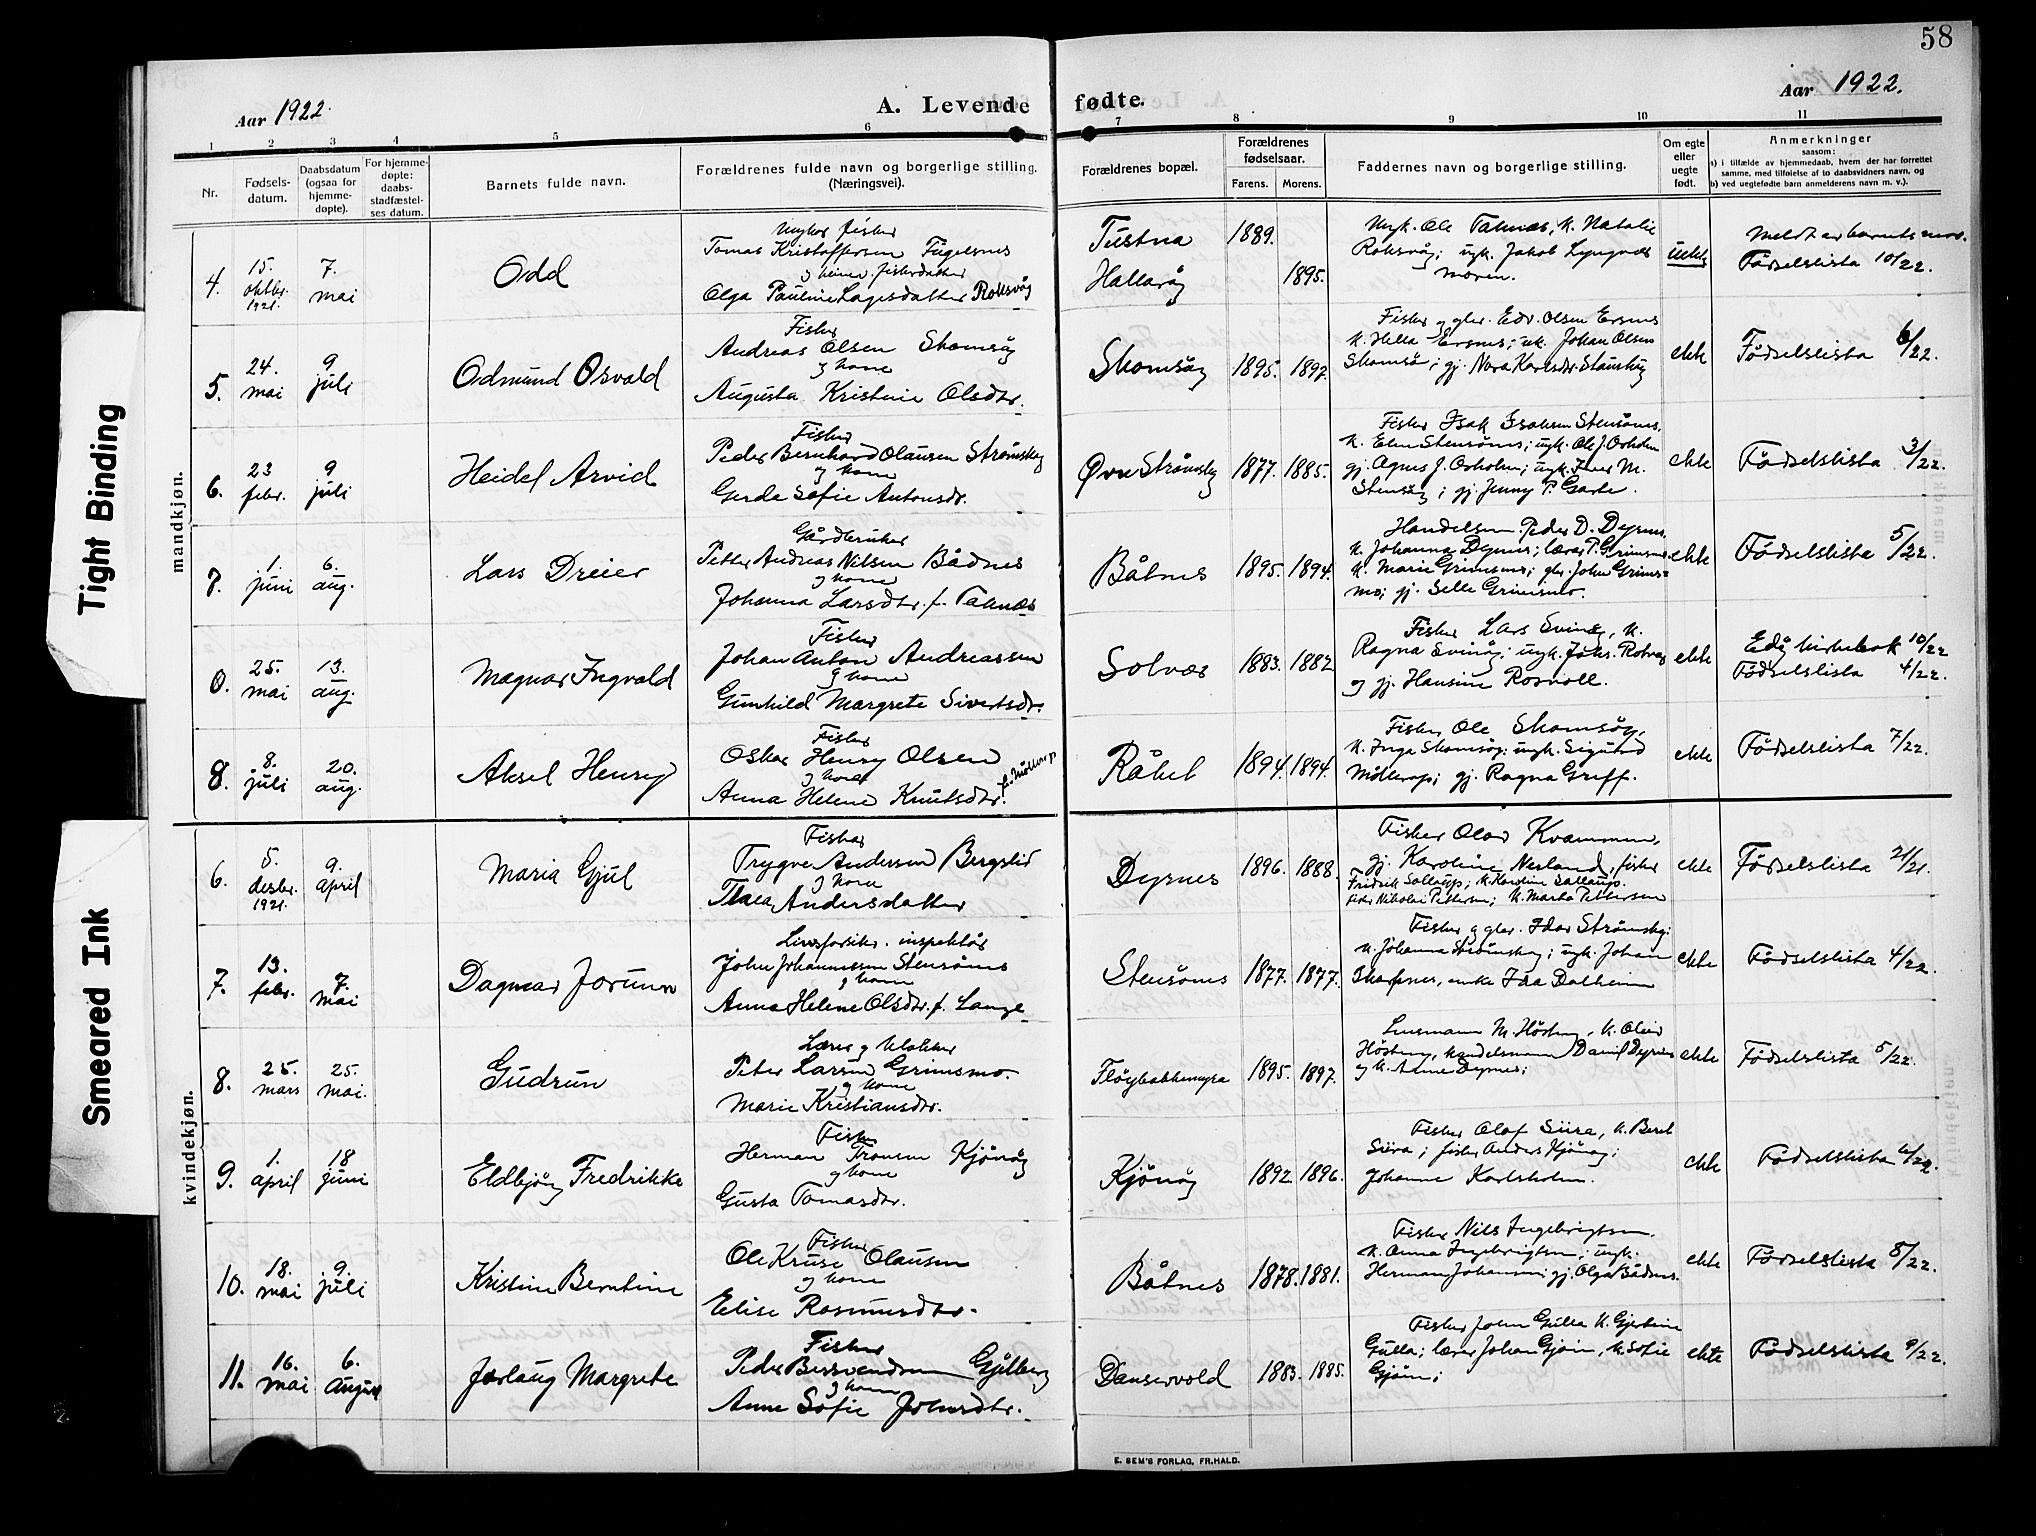 58
Aar 1922.
A. Levende fødte.
Aar 1922.
1 2 3 4 5 6 7 8 9 10 11
Nr.
Fødsels-
datum.
Daabsdatum
(ogsaa for
hjemme-
døpte).
For hjemme-
døpte:
daabs-
stadfæstel-
ses datum.
Barnets fulde navn.
Forældrenes fulde navn og borgerlige stilling.
(Næringsvei).
Forældrenes bopæl.
Forældrenes
fødselsaar.
Farens. Morens.
Faddernes navn og borgerlige stilling.
Om egte
eller
uegte
født.
Anmerkninger
saasom:
a) i tilfælde av hjemmedaab, hvem der har forrettet
samme, med tilføielse af to daabsvidners navn, og
b) ved uegtefødte barn anmelderens navn m. v.).
mandkjøn.
4.
15.
oktbr.
1921.
7.
mai
Odd
Ungkar fisker
Tomas Kristoffersen Fugelsnes
og kvinne fiskerdatter
Olga Pauline Lagesdatter Roksvåg
Tustna
Hallaråg
1889.
1895.
Ungk. Ole Taknæs, k. Natalie
Roksvåg; ungk. Jakob Lyngnes
moren.
uekte
Meldt av barnets mor.
Fødselslista 10/22.
5.
24.
mai
9
juli
Odmund Osvald
Fisker
Andreas Olsen Skomsøg
og kone
Augusta Kristine Olsdtr.
Skomsøg
1895. 1897.
Fisker og glbr. Edv. Olsen Ersnes
k. Hella Ersnes; uk. Johan Olsen
Skomsø; gj. Nora Karlsdtr.
ekte
Fødselslista 6/22.
6.
23
febr.
9
juli
Heidel Arvid
Fisker
Peder Bernhard Olausen Strømskg
og kone
Gerda Sofie Antonsdr.
Øvre Strømskg
1877. 1885.
Fisker Isak Isaksen Stensønes.
k. Elen Stensønes; ungk. Ole J. Orholm
gj. Agnes J. Orholm; ungk. Iver M.
Stensøg; gj Jenny P. Garte.
ekte
Fødselslista 3/22.
7.
1.
juni
6.
aug.
Lars Dreier
Gårdbruker
Petter Andreas Nilsen Bådnes
og kone
Johanna Larsdtr. f. Taknæs
Båtnes
1895. 1894.
Handelsm. Peder D. Dyrnes,
k. Johanna Dyrnes; lærer P. Grimsmo
k. Marie Grimsmo; glbr. John Grims-
mo; gj. Selle Grimsmo.
ekte
Fødselslista 5/22.
0.
25.
mai
13.
aug.
Magnar Ingvald
Fisker
Johan Anton Andreassen
og kone
Gunhild Margrete Sivertsdr.
Solvær
1883. 1882
Fisker Lars Svinøg, k.
Ragna Svinøg; ungk. Johs. Rotvåg
og gj. Hansine Rosvoll.
ekte
Edøy kirkebok 10/22
Fødselslista 4/22.
8.
8.
juli
20.
aug.
Aksel Henry
Fisker
Oskar Henry Olsen
og kone
Anna Helene Knutsdtr. f. Møllerop
Råket
1894. 1894.
Fisker Ole Skomsøg,
k. Inga Skomsøg; ungk. Sigurd
Møllerop; gj. Ragna Greff.
ekte
Fødselslista 7/22.
kvindekjøn.
6.
5.
desbr.
1921.
9.
april
Maria Gjul
Fisker
Trygve Andersen Bergslid
og kone
Thea Andersdatter
Dyrnes
1896. 1888.
Fisker Olav Kvammen,
gj. Karoline Nesland, fisker
Fridrik Sollaup; k. Karoline Sollaup.
fisker Nikolai Pettersen; k. Marta Pettersen
ekte
Fødselslista 2/21.
7.
13.
febr.
7.
mai
Dagmar Jorunn
Livsforsikr. inspektør
John Johannessen Stensønes
og kone
Anna Helene Olsdtr. f. Lange
Stensønes
1877. 1877.
Fisker og glbr. Idar Strømskg;
k. Johanna Strømskg; ungk. Johan
Skarpnes, enke Ida Dalheim
ekte
Fødselslista 4/22.
8.
25.
mars
25.
mai.
Gudrun
Lærer og klokker
Peter Larsen Grimsmo.
og kone
Marie Kristiansdtr.
Fløybakkmyra
1895. 1897.
Lensmann M. Høsteng, k. Olein
Høsteng, handelsmann Daniel Dyrnes
og k. Anne Dyrnes;
ekte
Fødselslista 5/22.
9.
1.
april
18
juni
Eldbjørg Fredrikke
Fisker
Herman Tronsen Kjønøg
og kone
Gusta Tomasdtr.
Kjønøg
1892 1896.
Fisker Olaf Siira, k. Beret
Siira; fisker Anders Kjønøg;
Johanne Karlsholm.
ekte
Fødselslista 6/22.
10.
18.
mai
9.
juli
Kristine Berntine
Fisker
Ole Kruse Olausen
og kone
Elise Rasmusdtr.
Båtnes
1878. 1881.
Fisker Nils Ingebrigtsen.
k. Anna Ingebrigtsen; ungk.
Herman Johansen; gj. Olga Bådnes.
ekte
Fødselslista 8/22.
11.
16.
mai
6.
august
Jorlaug Margrete
Fisker
Peder Gjelberg
og kone
Anne Sofie Johnsdtr.
Danservold
1883. 1885.
Fisker John Gulla k. Gjertine
Gulla; lærer Johan Gjøin, k. Sofie
Gjøin;
ekte
Fødselslista 9/22.
E. SEM'S FORLAG, FR.HALD.
Tight Binding
Smeared Ink